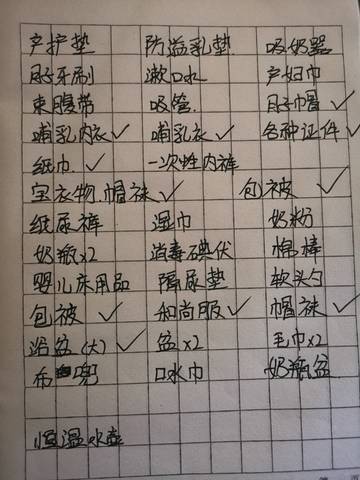 产护垫 防溢乳垫 吸奶器
月子牙刷 漱口水 产妇巾
束腹带 吸管 月子帽 ✓
哺乳内衣 ✓ 哺乳衣 ✓ 各种证件 ✓
纸巾 ✓ 一次性内裤
宝衣物、帽袜 ✓ 包被 ✓
纸尿裤 湿巾 奶粉
奶瓶x2 消毒碘伏 棉棒
婴儿床用品 隔尿垫 软头勺
包被 ✓ 和尚服 ✓ 帽袜 ✓
浴盆(大) ✓ 盆x2 毛巾x2
布兜 口水巾 奶瓶盆
恒温水壶